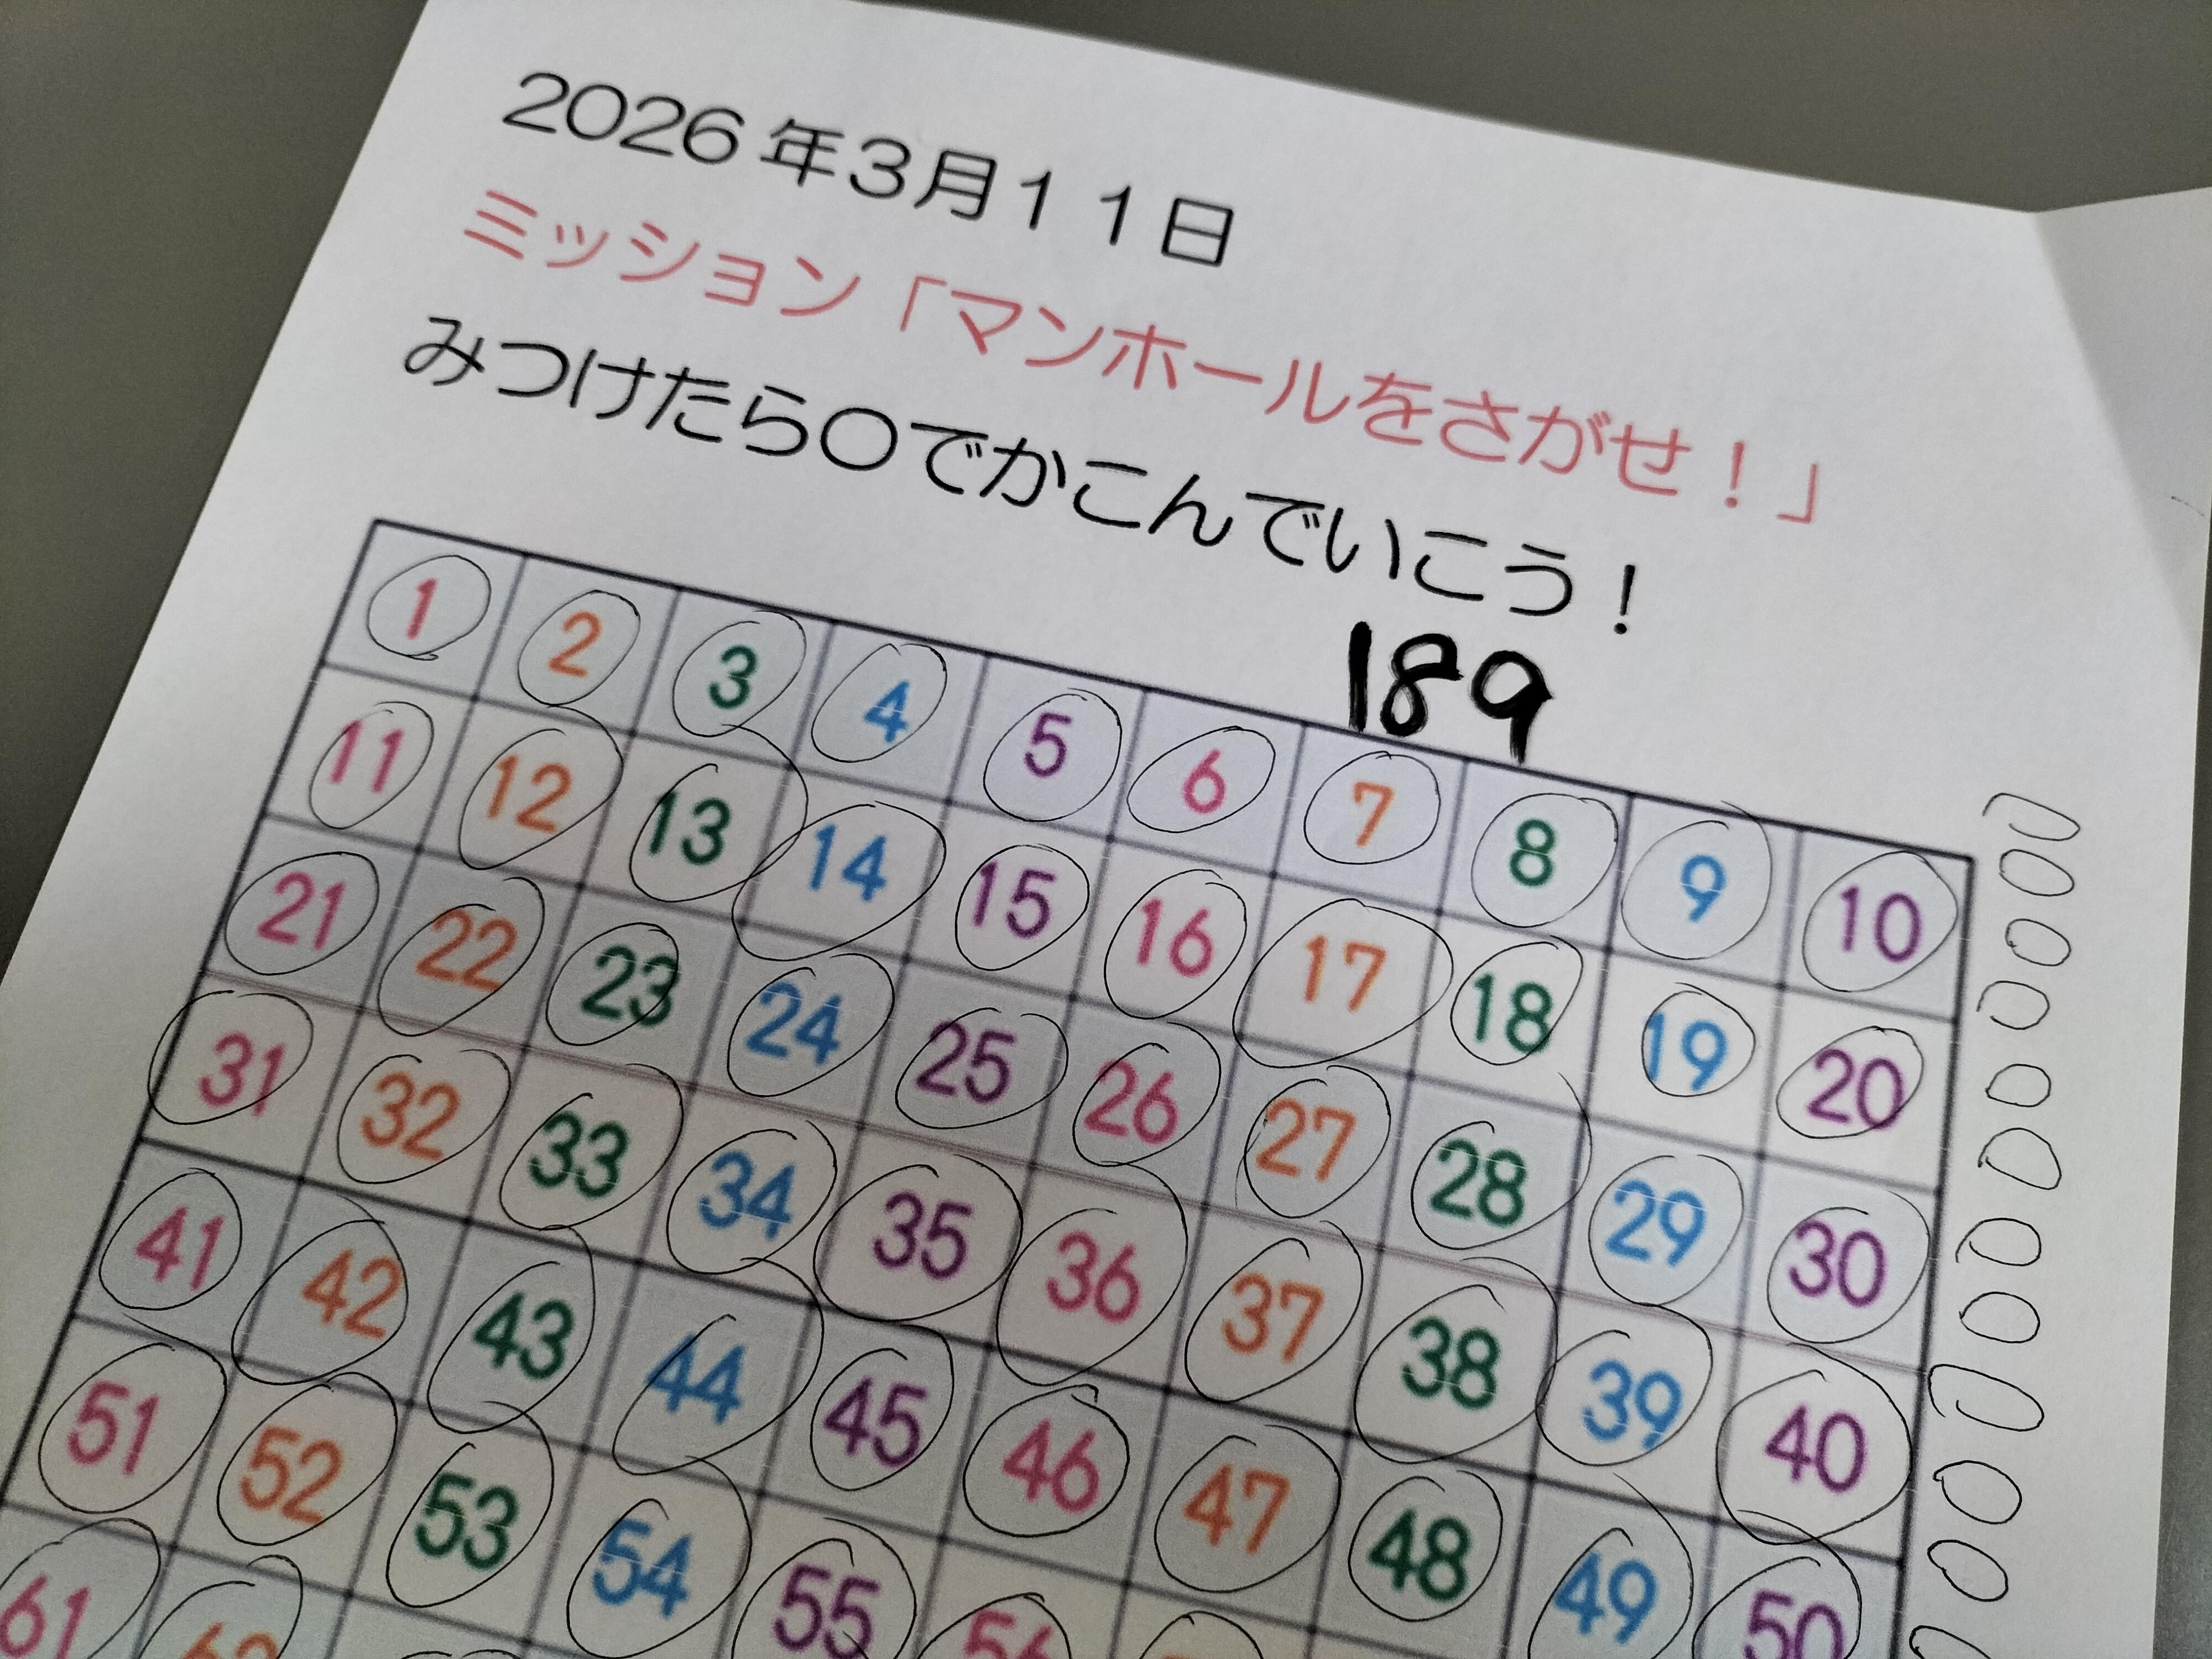 2026年3月11日
ミッション「マンホールをさがせ！」
みつけたら〇でかこんでいこう！
189
1 2 3 4 5 6 7 8 9 10
11 12 13 14 15 16 17 18 19 20
21 22 23 24 25 26 27 28 29 30
31 32 33 34 35 36 37 38 39 40
41 42 43 44 45 46 47 48 49 50
51 52 53 54 55 56
61